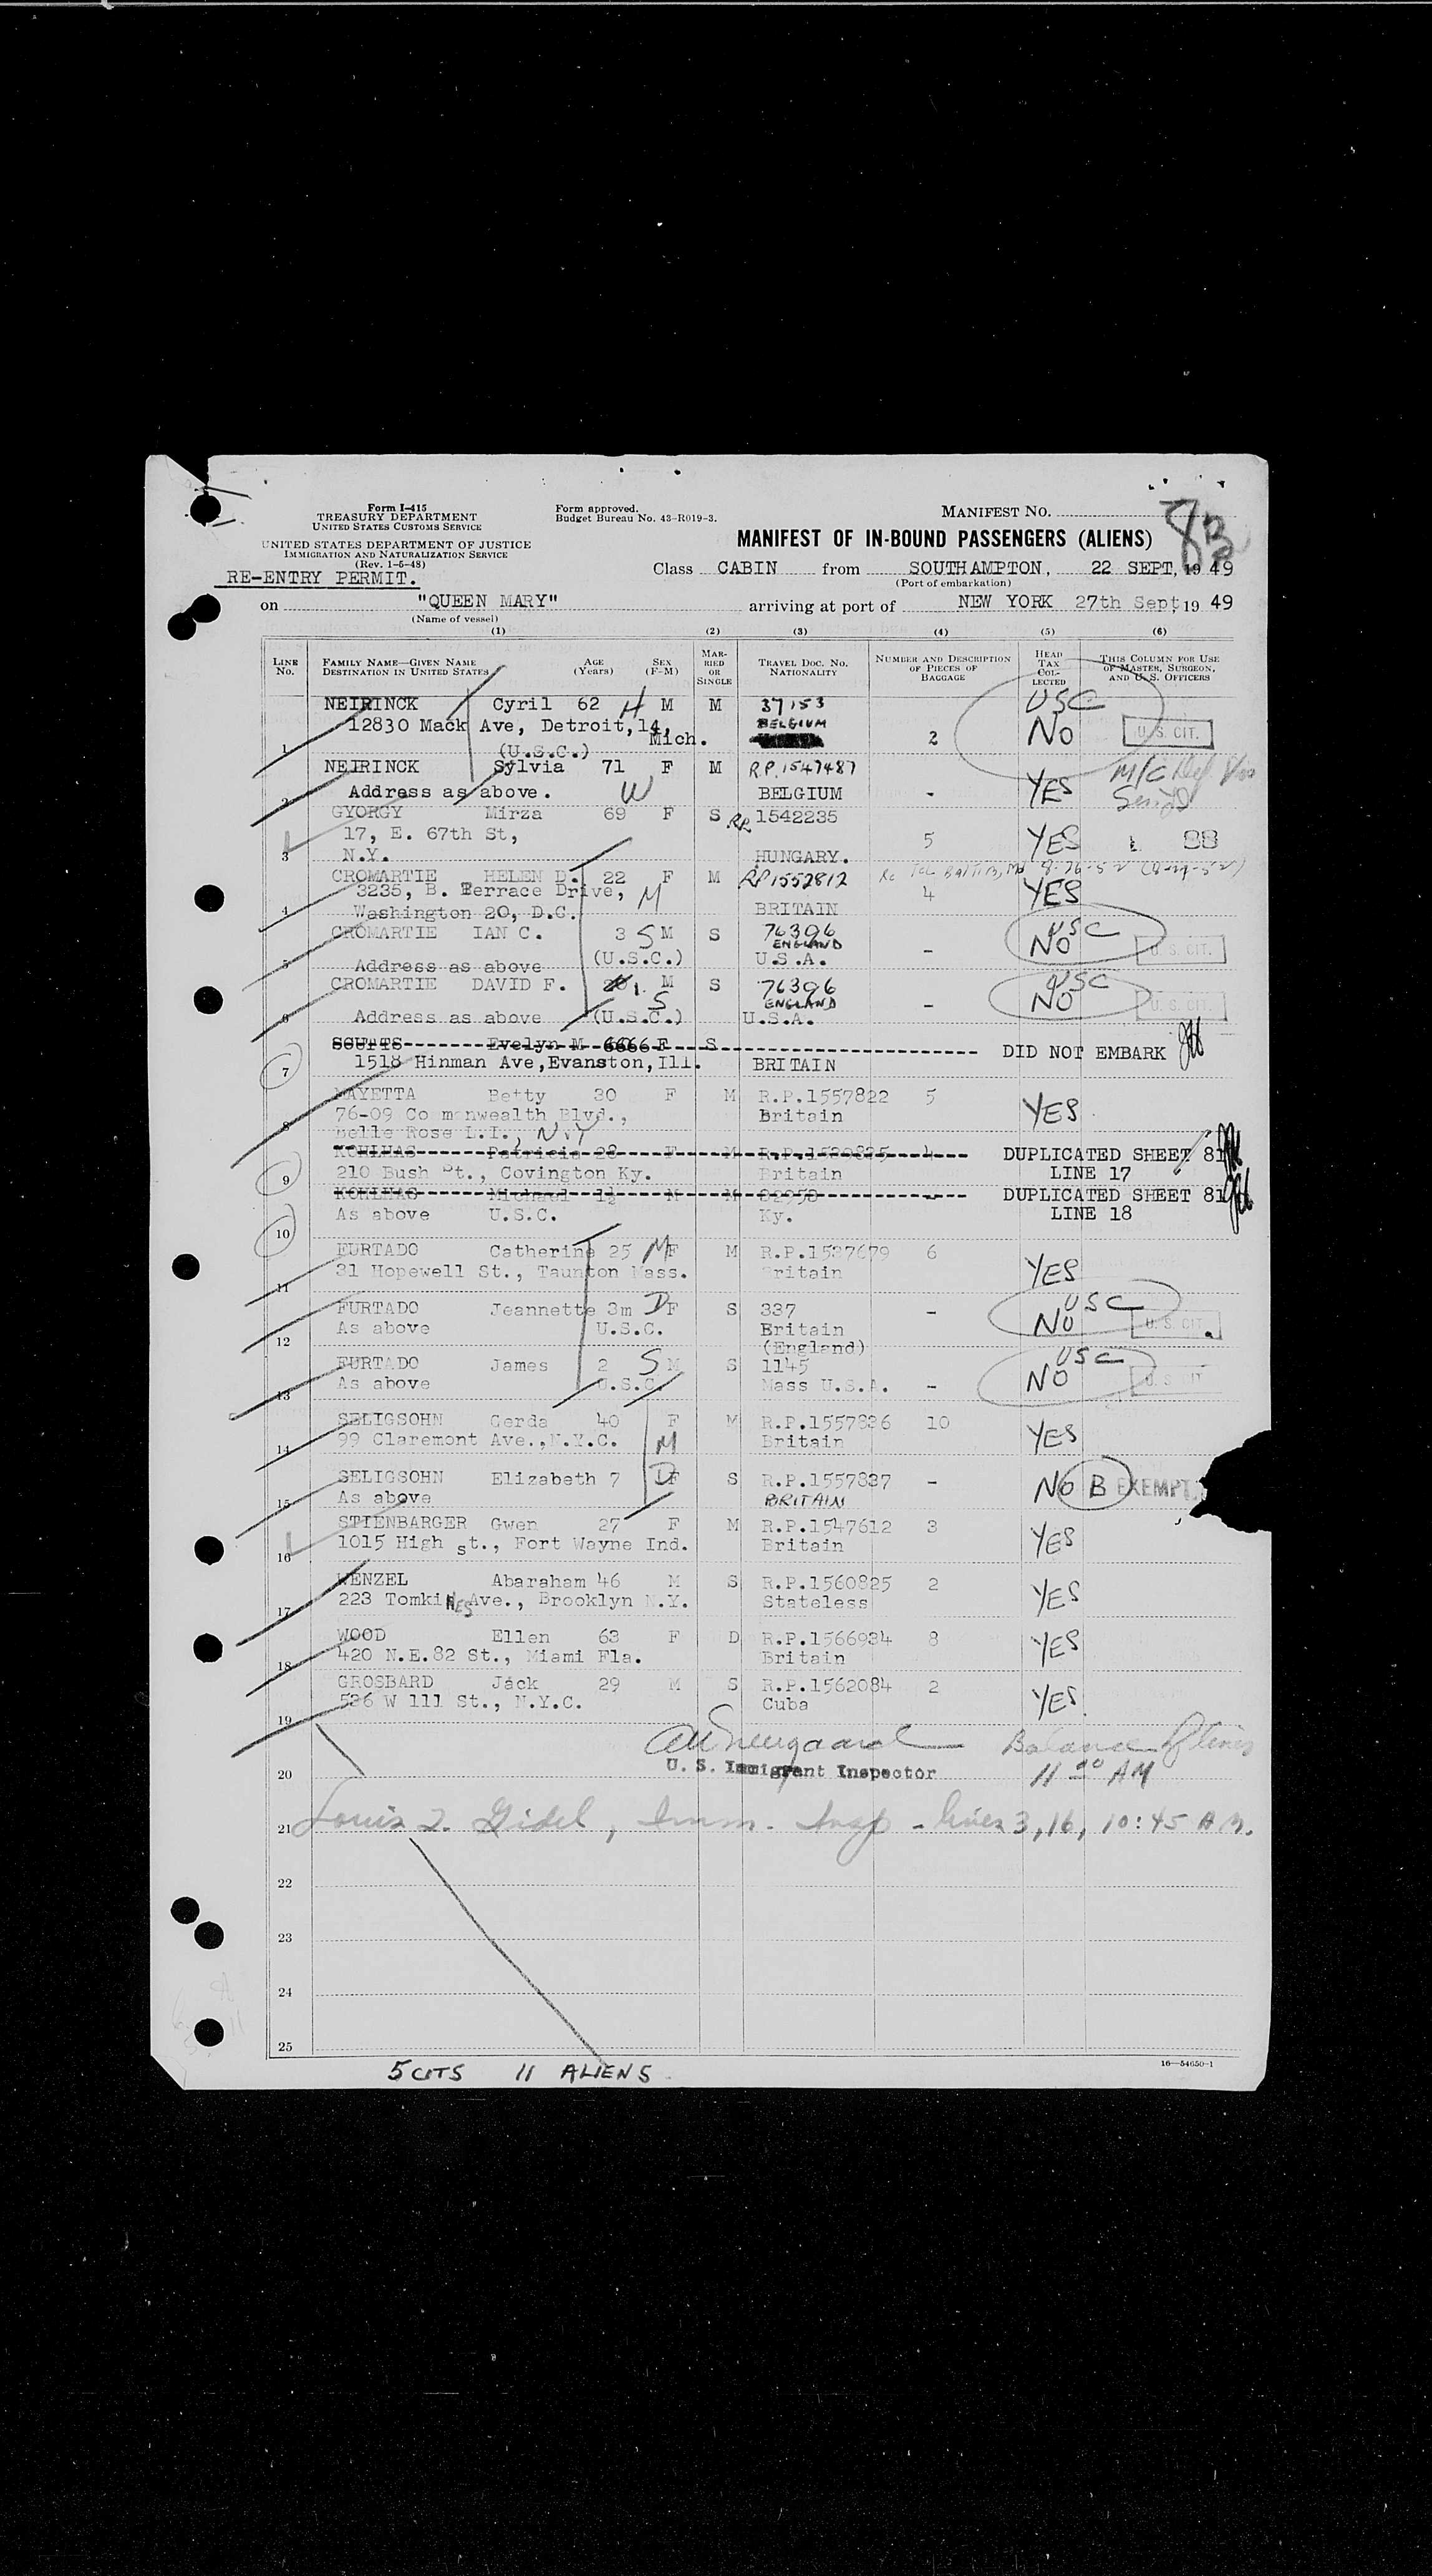 Form I-415
TREASURY DEPARTMENT
UNITED STATES CUSTOMS SERVICE
UNITED STATES DEPARTMENT OF JUSTICE
IMMIGRATION AND NATURALIZATION SERVICE
(Rev. 1-6-48)
RE-ENTRY PERMIT.
Form approved.
Budget Bureau No. 43-R019-3.
MANIFEST NO.
83
MANIFEST OF IN-BOUND PASSENGERS (ALIENS)
Class CABIN from SOUTHAMPTON, 22 SEPT, 19 49
(Port of embarkation)
on "QUEEN MARY" arriving at port of NEW YORK 27th Sept, 19 49
(Name of vessel)
(1) (2) (3) (4) (5) (6)
LINE No. FAMILY NAME—GIVEN NAME DESTINATION IN UNITED STATES AGE (Years) SEX (F-M) MARRIED OR SINGLE TRAVEL DOC. NO. NATIONALITY NUMBER AND DESCRIPTION OF PIECES OF BAGGAGE HEAD TAX COLLECTED THIS COLUMN FOR USE OF MASTER, SURGEON, AND U. S. OFFICERS
NEIRINCK Cyril 62 H M M 37153 USC
12830 Mack Ave, Detroit, 14, Mich. BELGIUM
1 (U.S.C.) 2 NO U. S. CIT.
NEIRINCK Sylvia 71 F M R.P. 1547487
2 Address as above. W BELGIUM - YES
GYORGY Mirza 69 F S RP 1542235
17, E. 67th St, 5 YES 88
3 N.Y. HUNGARY.
CROMARTIE HELEN D. 22 F M RP1552812
3235, B. Terrace Drive, M 4 YES
4 Washington 20, D.C. BRITAIN
CROMARTIE IAN C. 3 S M S 76396 ENGLAND USC NO U. S. CIT.
5 Address as above (U.S.C.) U.S.A. -
CROMARTIE DAVID F. 1. M S 76396 USC
S ENGLAND - NO U. S. CIT.
6 Address as above (U.S.C.) U.S.A.
Evelyn M 66 F S DID NOT EMBARK
7 1518 Hinman Ave, Evanston, Ill. BRITAIN
MAYETTA Betty 30 F M R.P.1557822 5 YES
76-09 Commonwealth Blvd., Britain
8 Belle Rose L.I., N.Y
KOHLHAS Patricia 28 F M R.P.1530835 4 DUPLICATED SHEET 81
9 210 Bush St., Covington Ky. Britain LINE 17
KOHLHAS Michael 1½ M M DUPLICATED SHEET 81
10 As above U.S.C. Ky. LINE 18
FURTADO Catherine 25 M F M R.P.1537679 6
11 31 Hopewell St., Taunton Mass. Britain YES
FURTADO Jeannette 3m D F S 337 - USC
12 As above U.S.C. Britain NO U. S. CIT.
(England)
FURTADO James 2 S M S 1145 USC
13 As above U.S.C. Mass U.S.A. - NO U. S. CIT
SELIGSOHN Gerda 40 F M R.P.1557836 10
14 99 Claremont Ave., N.Y.C. M Britain YES
SELIGSOHN Elizabeth 7 D F S R.P.1557837 - NO B EXEMPT
15 As above BRITAIN
STIENBARGER Gwen 27 F M R.P.1547612 3
16 1015 High st., Fort Wayne Ind. Britain YES
WENZEL Abaraham 46 M S R.P.1560825 2
17 223 Tomkines Ave., Brooklyn N.Y. Stateless YES
WOOD Ellen 63 F D R.P.1566934 8
18 420 N.E.82 St., Miami Fla. Britain YES
GROSBARD Jack 29 M S R.P.1562084 2
536 W 111 St., N.Y.C. Cuba YES
19
Balance of lines
20 U. S. Immigrant Inspector 11 00 AM
21 Louis Gidel, Imm. Insp - lines 3, 16, 10:45 A.M.
22
23
24
25
16—54650-1
5 CITS 11 ALIENS